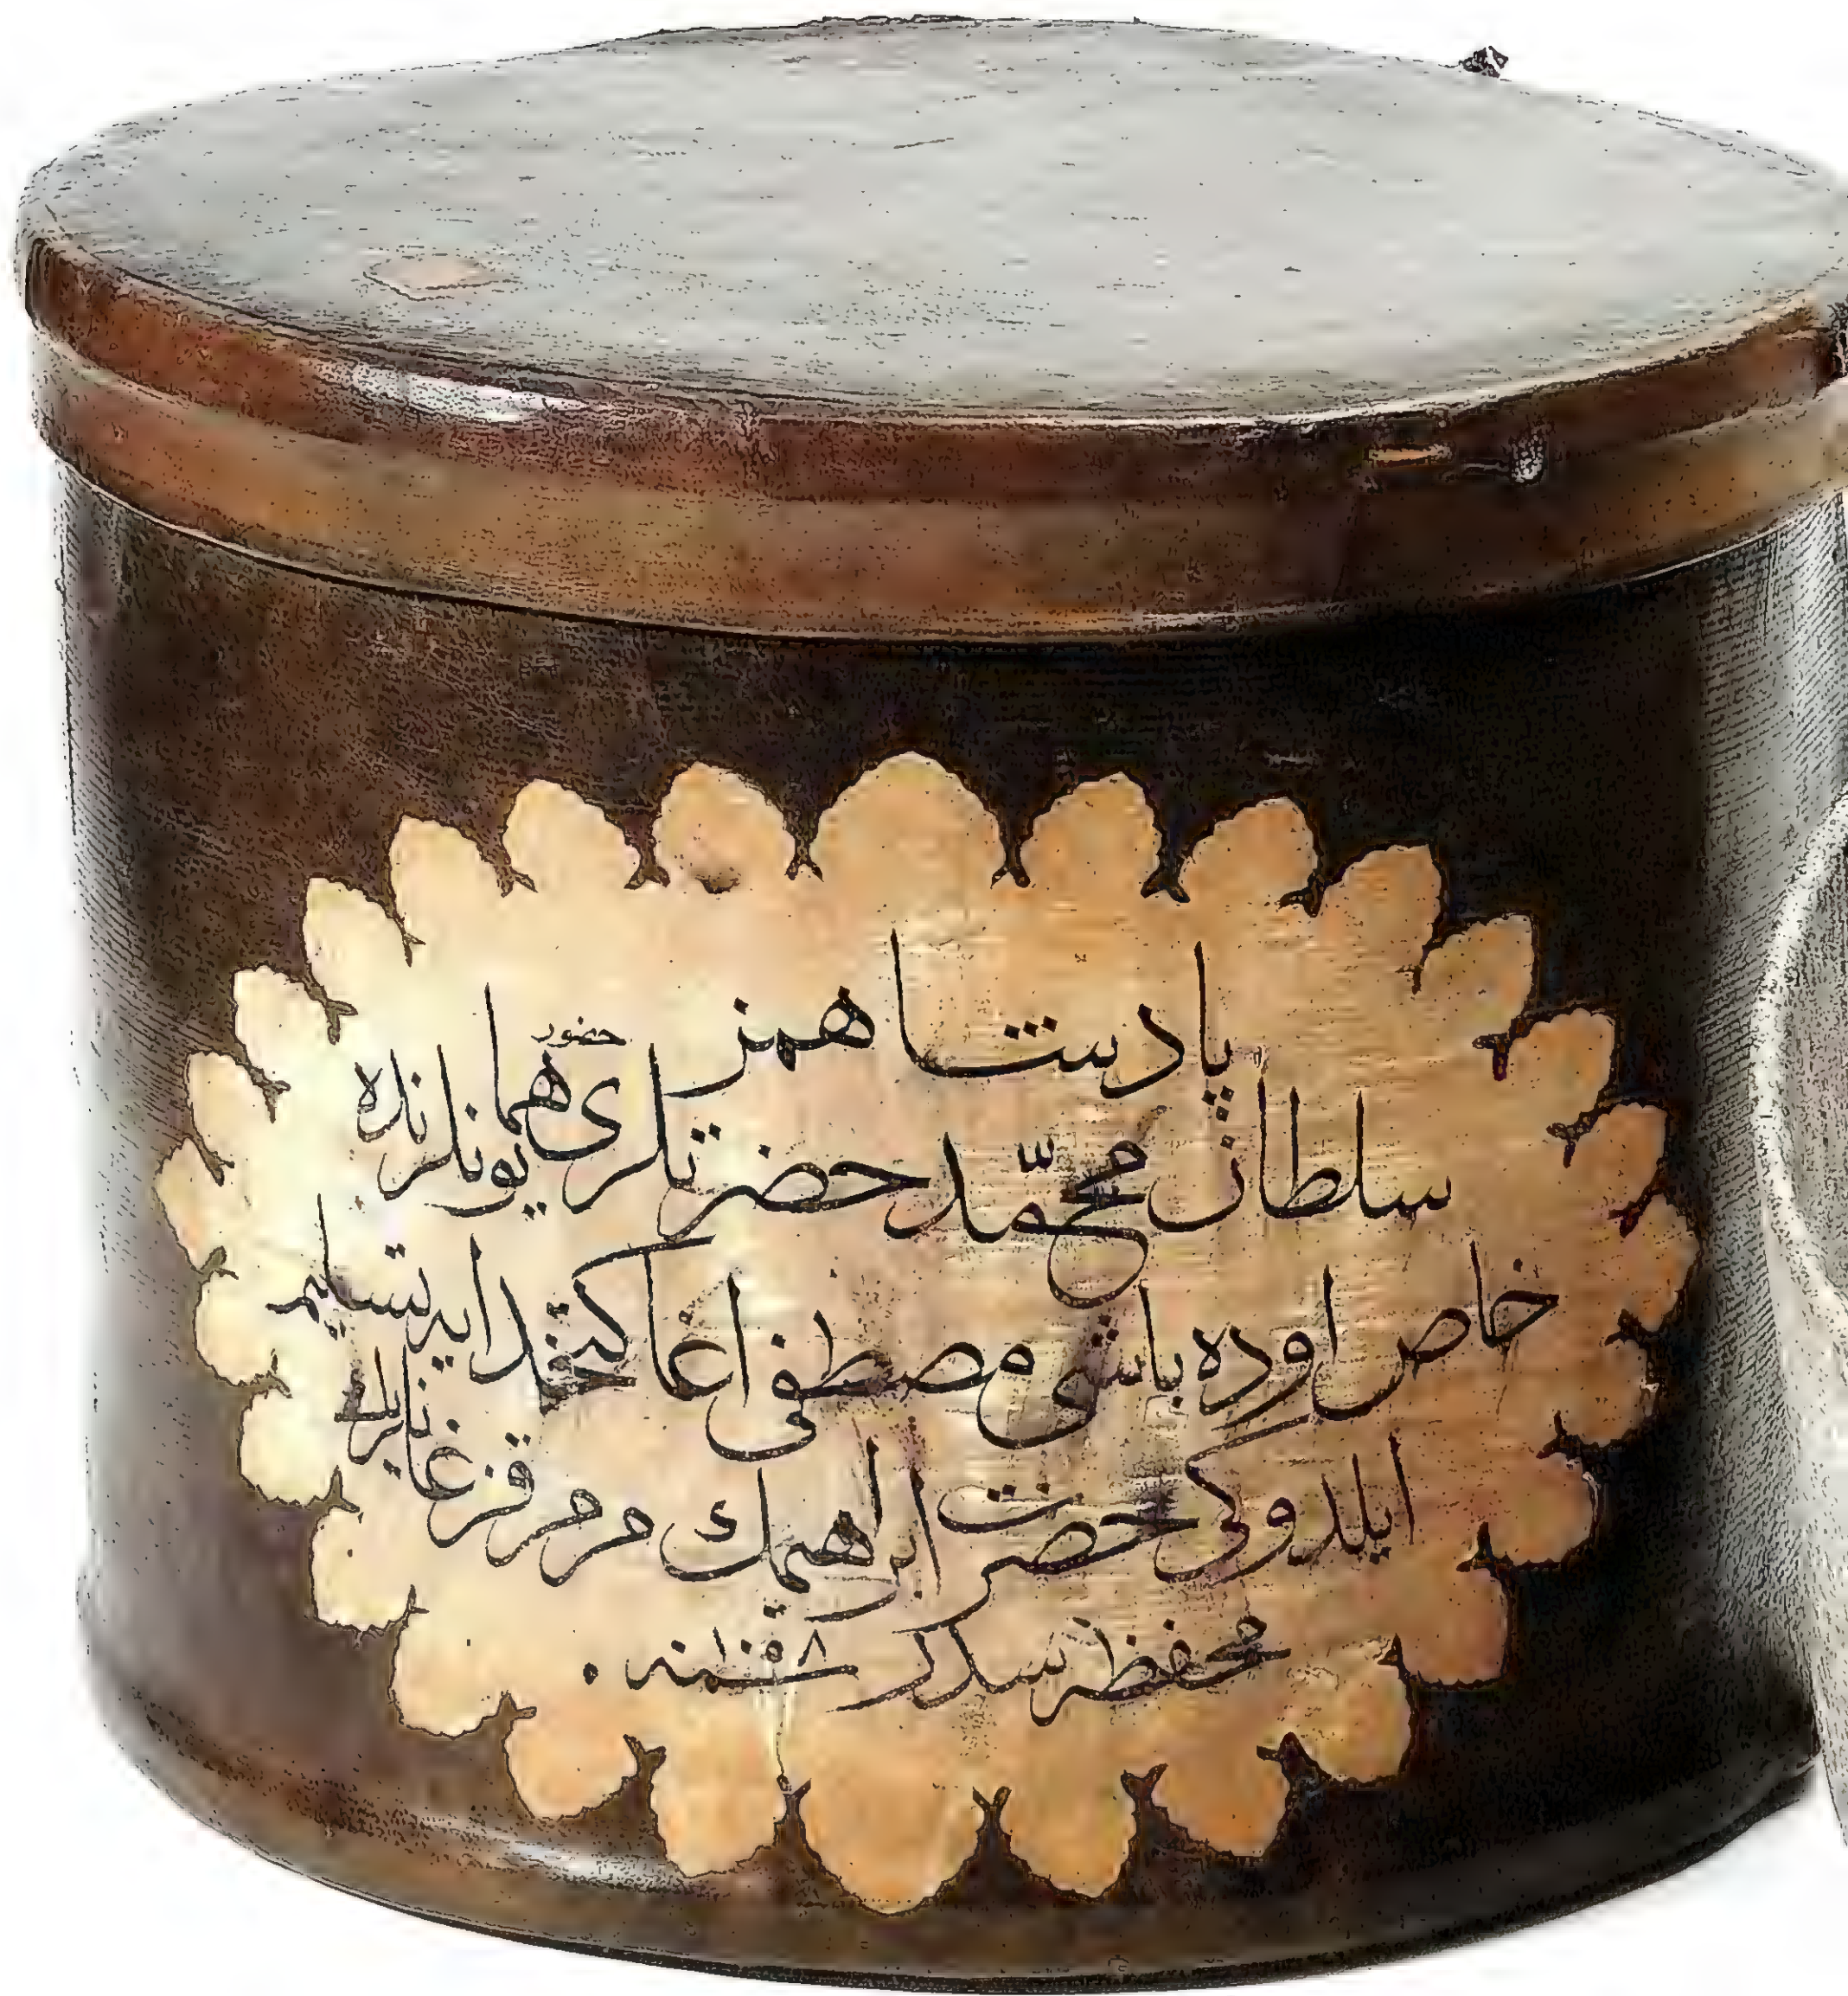 پادشاهمز
سلطان محمّد حضرتلری حضور همایونلرنده
خاص اوده باشی مصطفی اغا كتخدایه تسلیم
ایلدوكی حضرت ابرهیمك مرمر قزغانلریله
محفظه سدر سنه